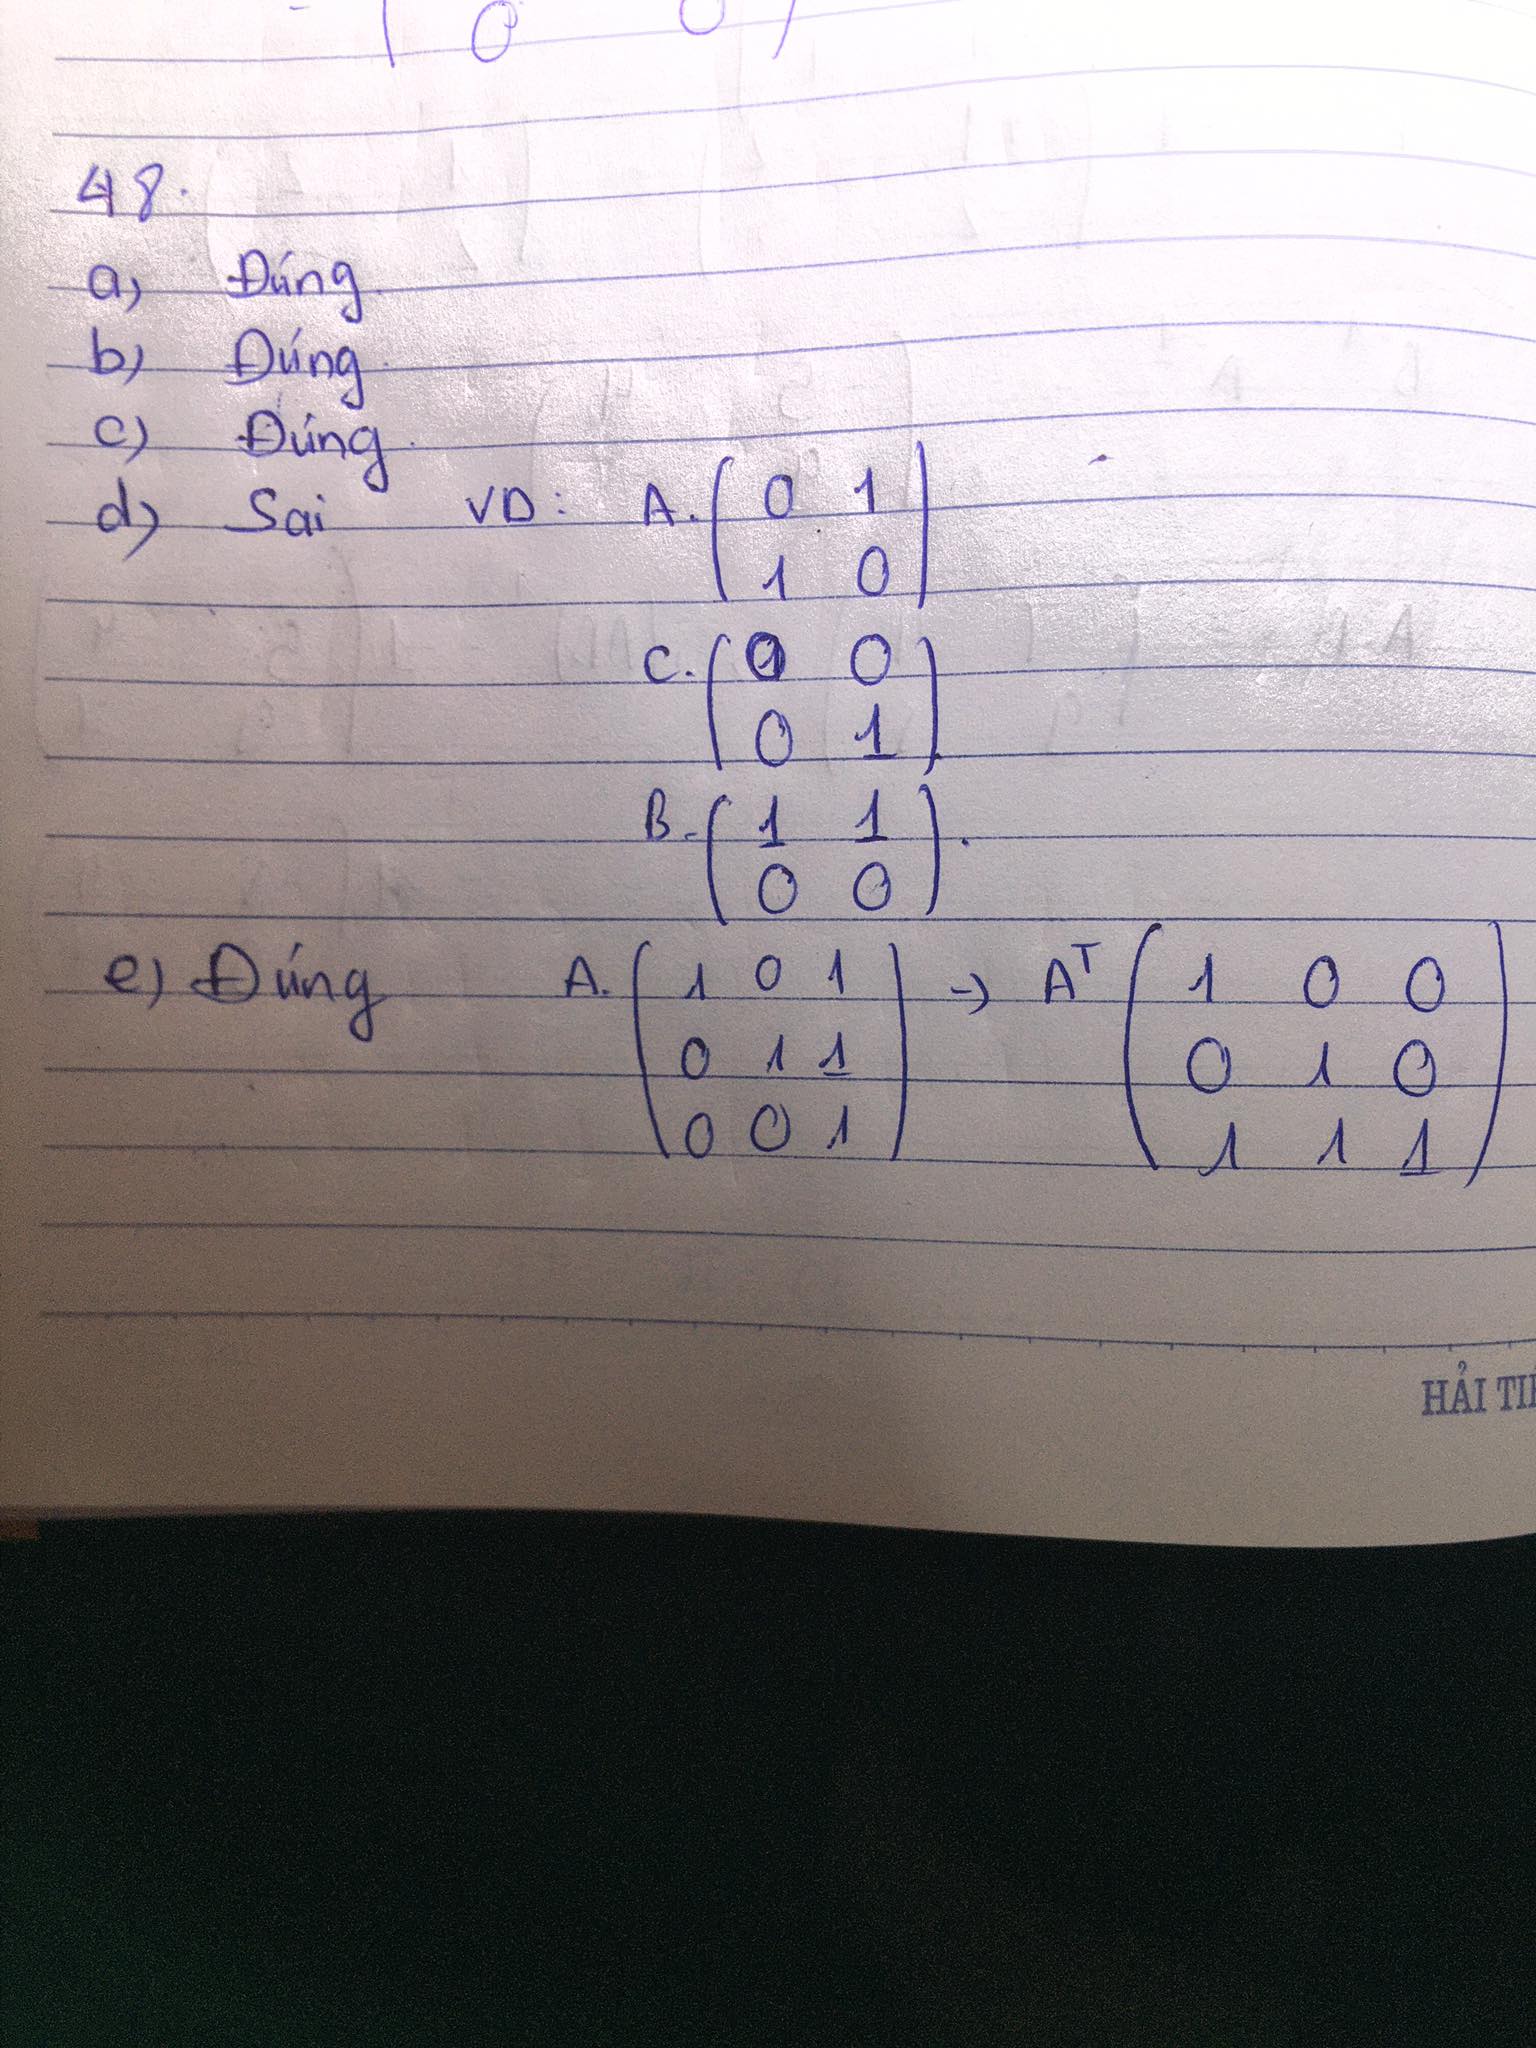 0 0
48.
a) Đúng.
b) Đúng.
c) Đúng.
d) Sai VD: A. ( 0 1
1 0 )
C. ( 0 0
0 1 )
B. ( 1 1
0 0 ).
e) Đúng A. ( 1 0 1 → Aᵀ ( 1 0 0
0 1 1 0 1 0
0 0 1 ) 1 1 1 )
HẢI TI